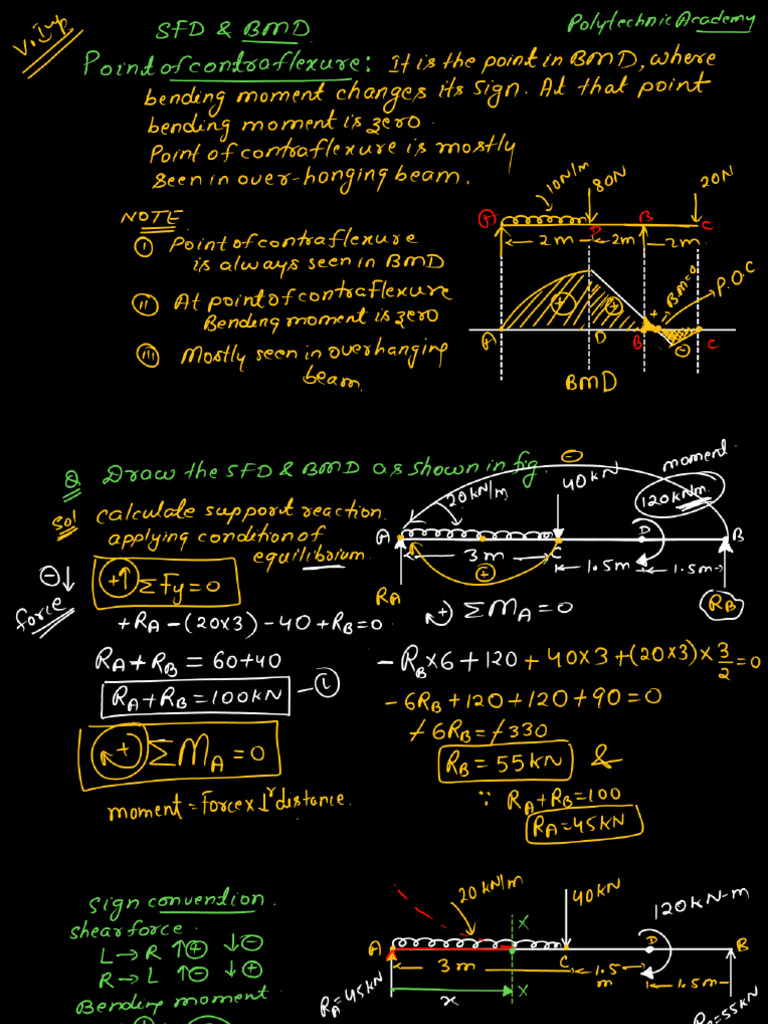 V.Imp
SFD & BMD
Polytechnic Academy
Point of contraflexure: It is the point in BMD, where
bending moment changes its sign. At that point
bending moment is zero.
Point of contraflexure is mostly
seen in over-hanging beam.
NOTE
(i) Point of contraflexure
is always seen in BMD
(ii) At point of contraflexure
Bending moment is zero
(iii) Mostly seen in overhanging
beam.
10N/m 80N 20N
A D B C
2m 2m 2m
+ + + BM=0 P.O.C
A D B - C
BMD
Q Draw the SFD & BMD as shown in fig.
Sol calculate support reaction
applying condition of
equilibrium.
+↑ ΣFy=0
⊖↓
force
+RA-(20×3)-40+RB=0
RA+RB=60+40
RA+RB=100KN —(i)
+ ΣMA=0
moment = Force×⊥r distance.
⊖ moment.
20KN/m 40KN 120KNm
A 3m C 1.5m D 1.5m B
⊕
RA RB
+ ΣMA=0
-RB×6+120+40×3+(20×3)×3/2=0
-6RB+120+120+90=0
-6RB=-330
RB=55KN &
∵ RA+RB=100
RA=45KN
Sign convention.
shear force.
L→R ↑⊕ ↓⊖
R→L ↑⊖ ↓⊕
Bending moment
20KN/m 40KN 120KN-m
X
A 3m C 1.5m D 1.5m B
x X
RA=45KN RB=55KN